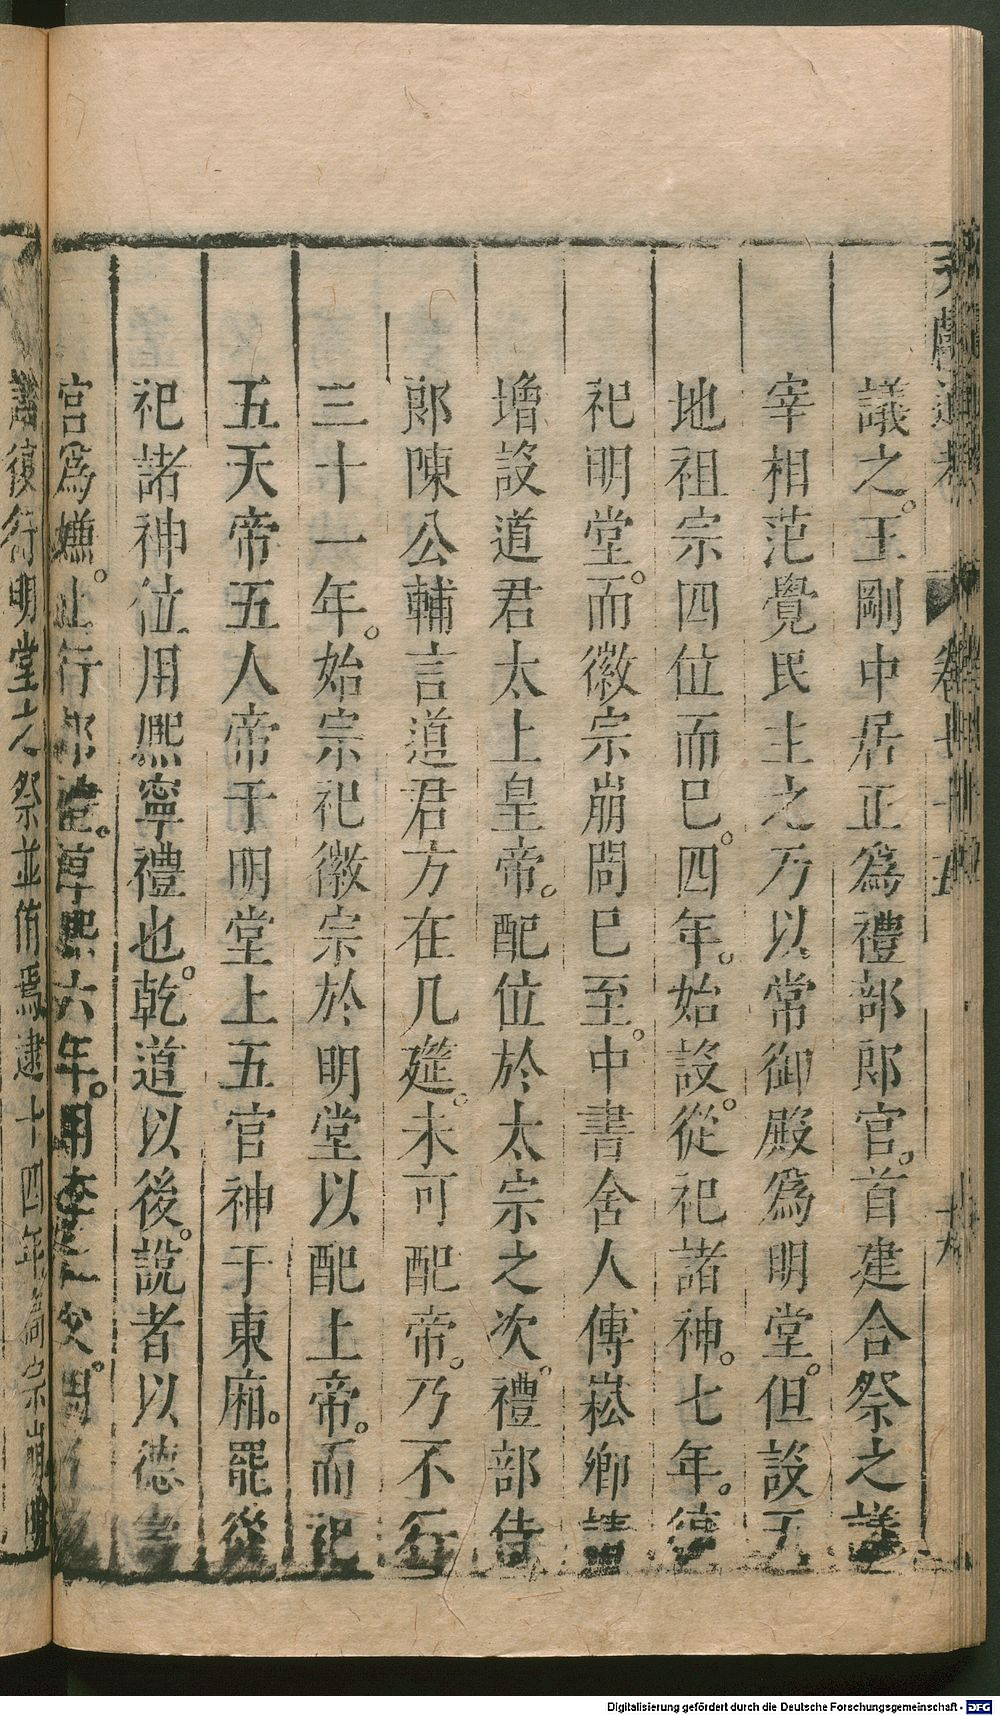 議之。王剛中居正為禮部郎官。首建合祭之議
宰相范覺民主之乃以常御殿爲明堂。但設天
地祖宗四位而巳。四年。始設。從祀諸神。七年。復
祀明堂。而徽宗崩問巳至。中書舍人傅崧卿請
增設道君太上皇帝。配位於太宗之次。禮部侍
郎陳公輔言道君方在几筵。未可配帝。乃不行
三十一年。始宗祀徽宗於明堂以配上帝。而祀
五天帝五人帝于明堂上五官神于東廂。罷從
祀諸神位用熙寧禮也。乾道以後。說者以德壽
宮爲嫌。止行郊禮。淳熙六年。用李
議復行明堂之祭並侑焉逮十四年高宗崩明
Digitalisierung gefördert durch die Deutsche Forschungsgemeinschaft - DFG